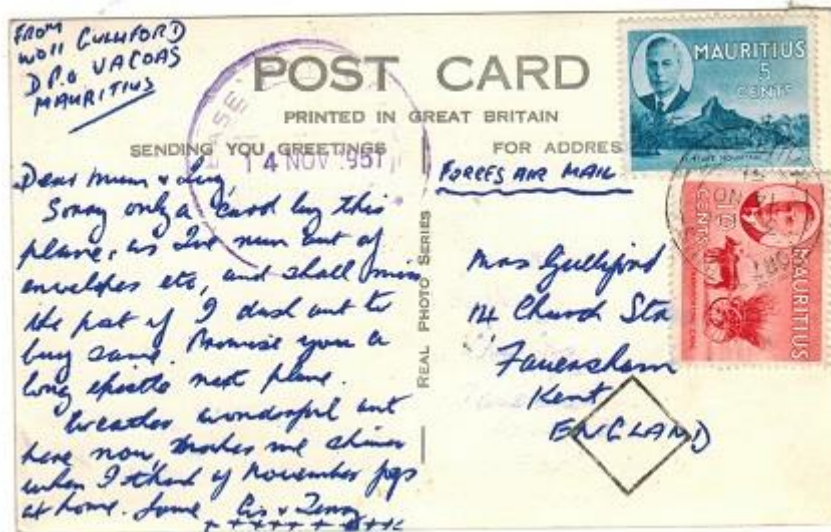 FROM
WOII GULLIFORD
D.P.O VACOAS
MAURITIUS
POST CARD
PRINTED IN GREAT BRITAIN
SENDING YOU GREETINGS
FOR ADDRES
14 NOV 1951
FORCES AIR MAIL
MAURITIUS
5
CENTS
MAURITIUS
CENTS
REAL PHOTO SERIES
Dear Mum &
Sorry only a card by this
plane, as I've run out of
envelopes etc, and shall miss
the post if I dash out to
buy some. Promise you a
long epistle next plane.
Weather wonderful out
here now, makes me shiver
when I think of November fogs
at home. Love
Mrs Gulliford
14 Church Str
Faversham
Kent
ENGLAND